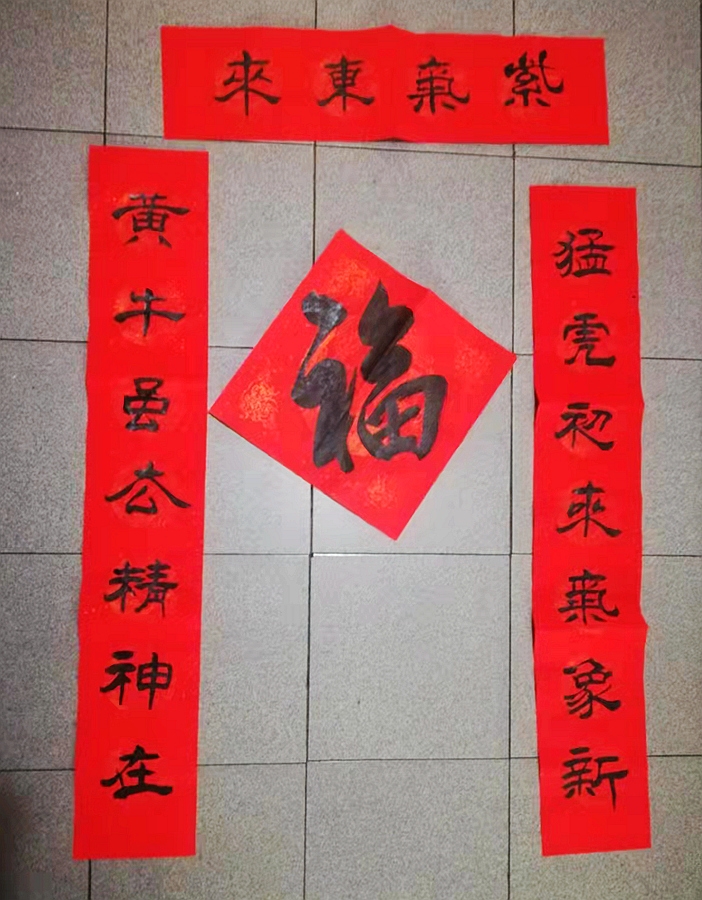 紫氣東來
黄牛虽去精神在
猛虎初來氣象新
福